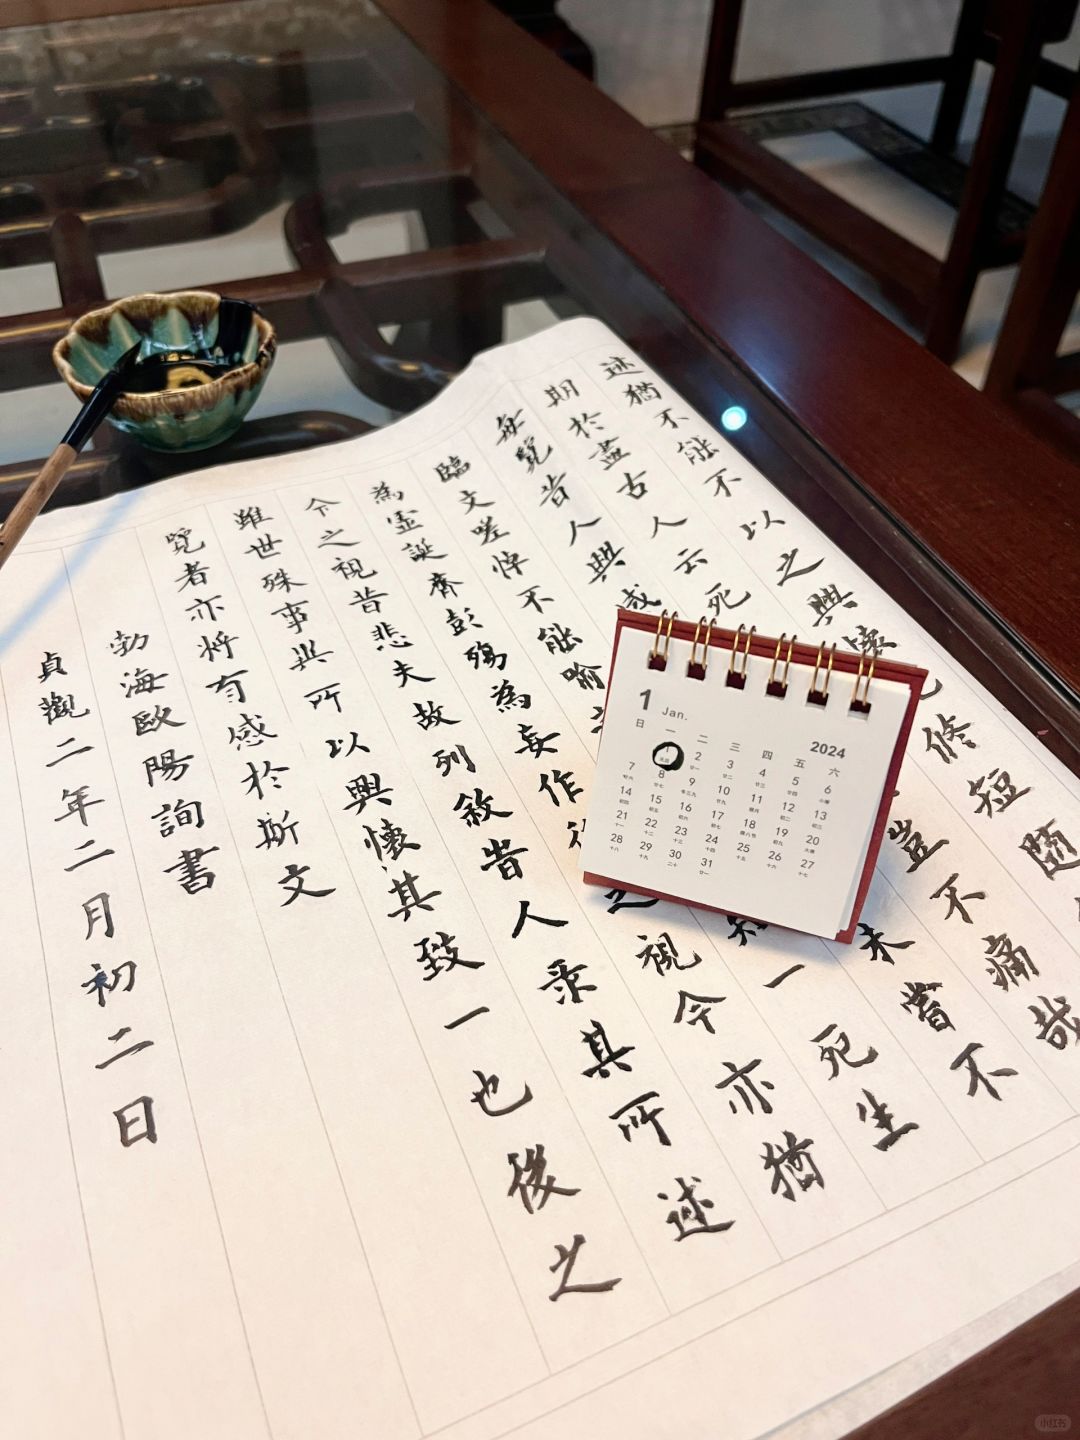 迹猶不能不以之興懷修短隨
期於盡古人云死豈不痛哉
每覽昔人興感未嘗不
臨文嗟悼不能喻之知一死生
為虛誕齊彭殤為妄作後之視今亦猶
今之視昔悲夫故列敘昔人录其所述
雖世殊事異所以興懷其致一也後之
覽者亦將有感於斯文
勃海歐陽詢書
貞觀二年二月初二日
1 Jan. 2024
日 一 二 三 四 五 六
1 2 3 4 5 6
7 8 9 10 11 12 13
14 15 16 17 18 19 20
21 22 23 24 25 26 27
28 29 30 31
小红书